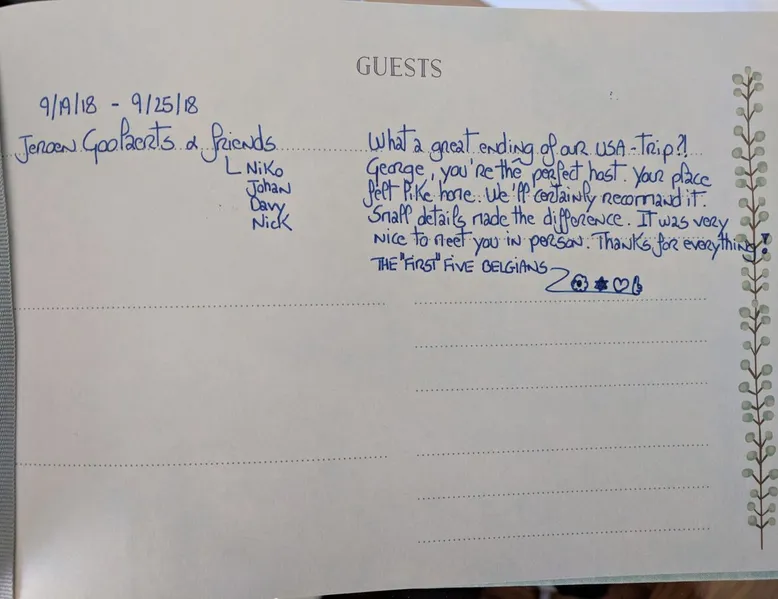 GUESTS
9/19/18 - 9/25/18
Jeroen Goolaerts & friends
Niko
Johan
Davy
Nick
What a great ending of our USA-Trip?!
George, you're the perfect host. Your place
felt like home. We'll certainly recommand it.
Small details made the difference. It was very
nice to meet you in person. Thanks for everything!
THE "FIRST" FIVE BELGIANS